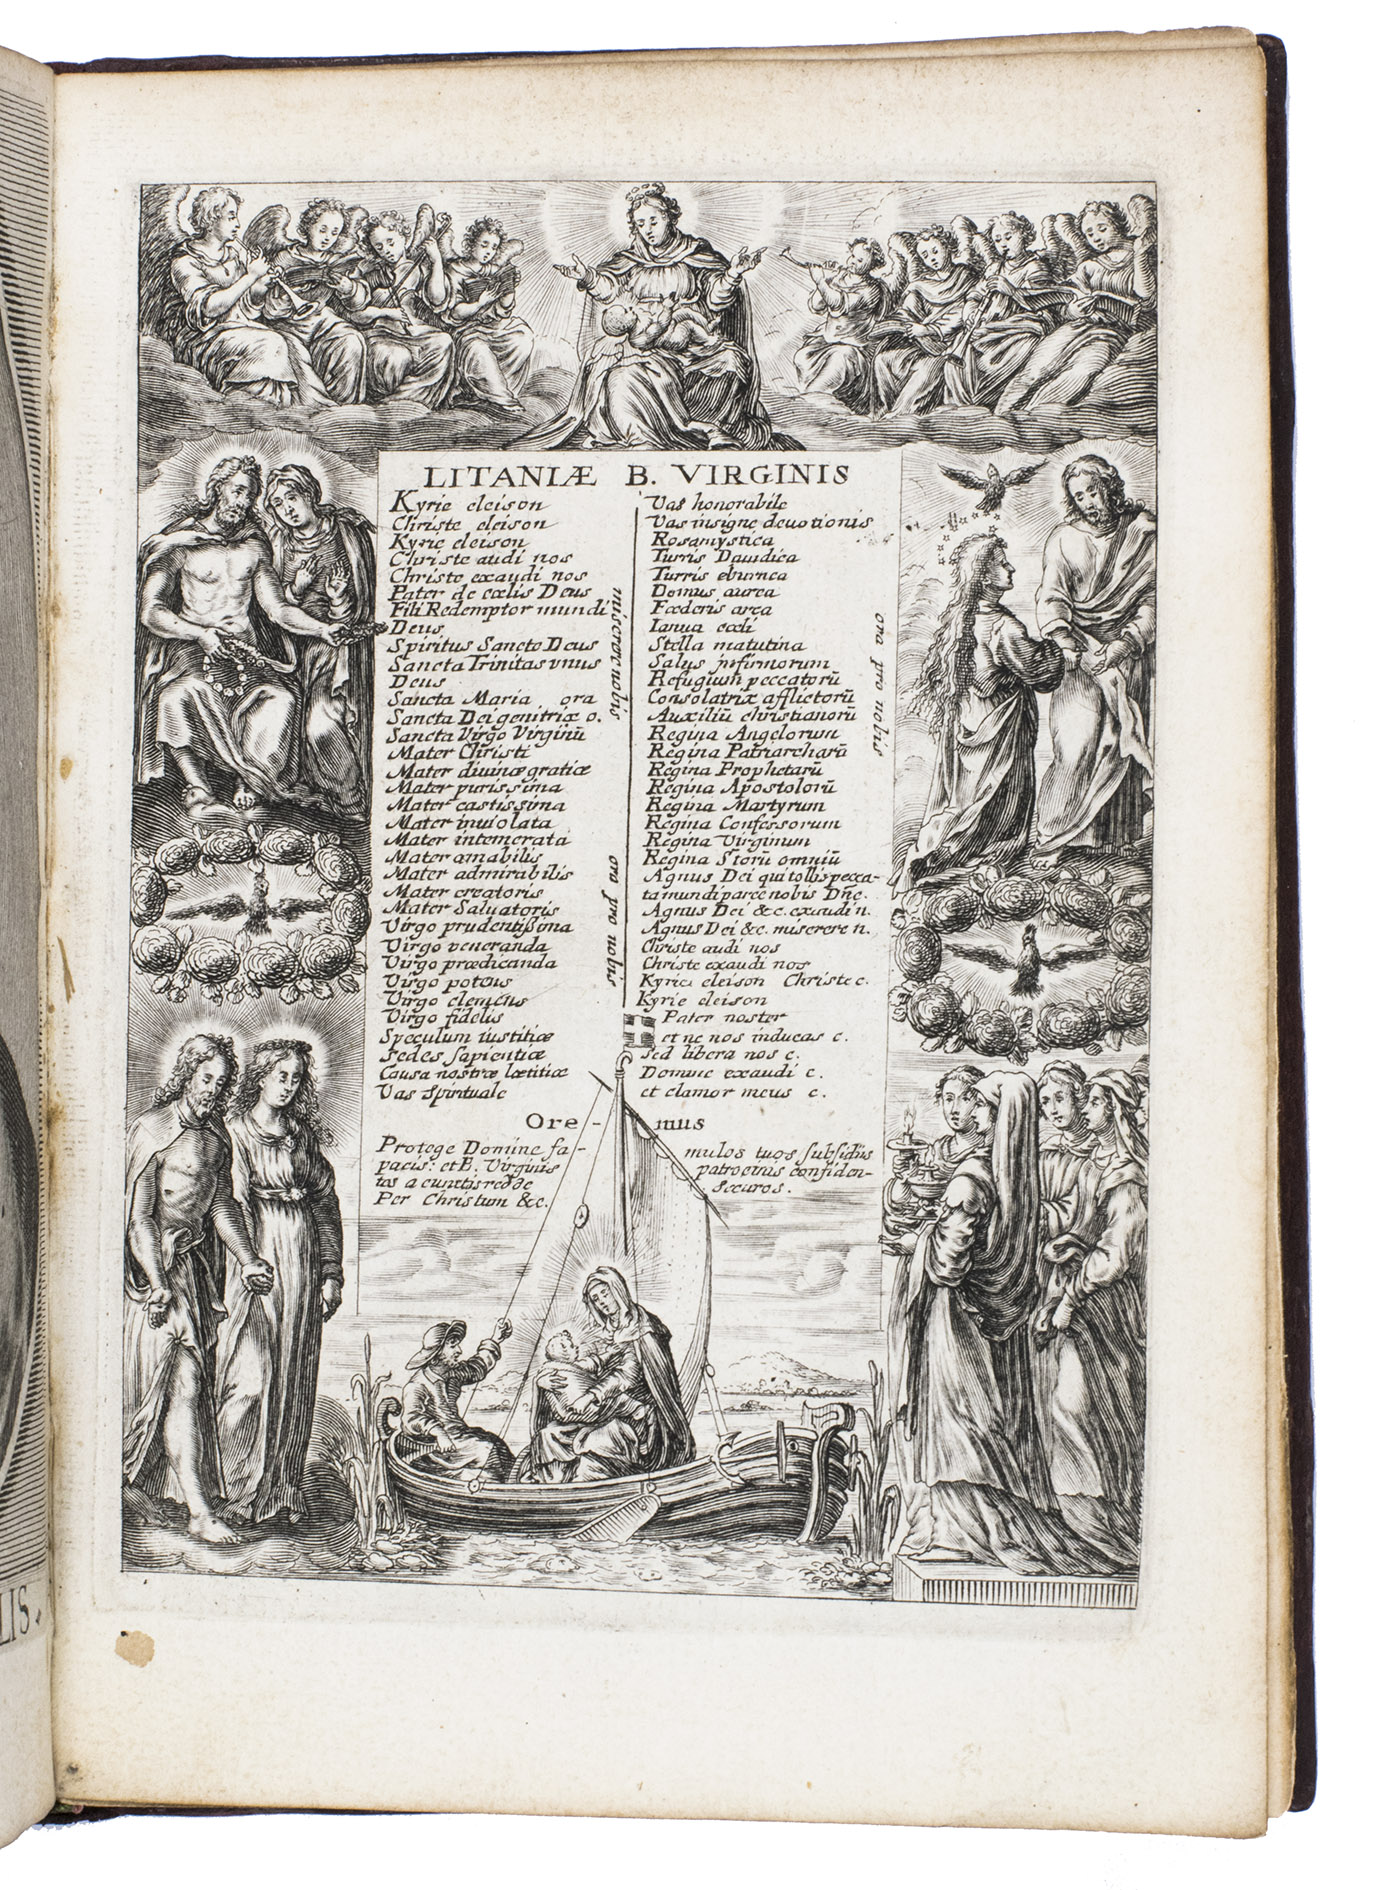 LIS.
LITANIÆ B. VIRGINIS
Kyrie eleison
Christe eleison
Kyrie eleison
Christe audi nos
Christe exaudi nos
Pater de cœlis Deus
Fili Redemptor mundi
Deus
Spiritus Sancto Deus
Sancta Trinitas vnus
Deus
miserere nobis
Sancta Maria, ora
Sancta Dei genitrix o.
Sancta Virgo Virginū
Mater Christi
Mater diuinæ gratiæ
Mater purissima
Mater castissima
Mater inuiolata
Mater intemerata
Mater amabilis
Mater admirabilis
Mater creatoris
Mater Saluatoris
Virgo prudentißima
Virgo veneranda
Virgo prædicanda
Virgo potens
Virgo clemens
Virgo fidelis
Speculum iustitiæ
Sedes sapientiæ
Causa nostræ lætitiæ
Vas spirituale
ora pro nobis
Vas honorabile
Vas insigne deuotionis
Rosa mystica
Turris Dauidica
Turris eburnea
Domus aurea
Fœderis arca
Ianua cœli
Stella matutina
Salus infirmorum
Refugium peccatorū
Consolatrix afflictorū
Auxiliū christianorū
Regina Angelorum
Regina Patriarcharū
Regina Prophetarū
Regina Apostolorū
Regina Martyrum
Regina Confessorum
Regina Virginum
Regina Storū omniū
ora pro nobis
Agnus Dei qui tollis pecca-
ta mundi parce nobis Dñe.
Agnus Dei &c. exaudi n.
Agnus Dei &c. miserere n.
Christe audi nos
Christe exaudi nos
Kyrie eleison Christe c.
Kyrie eleison
Pater noster
et ne nos inducas c.
sed libera nos c.
Domine exaudi c.
et clamor meus c.
Ore- mus
Protege Domine fa- mulos tuos subsidiis
pacis: et B. Virginis patrocinis confiden-
tes a cunctis redde securos.
Per Christum &c.